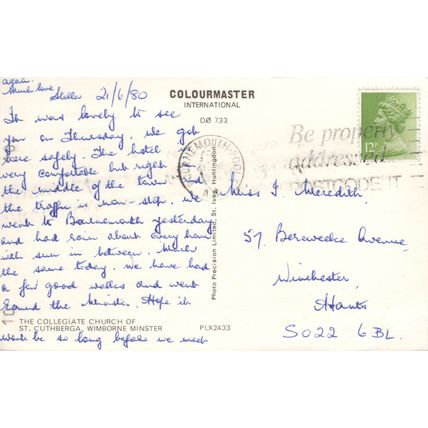 21/6/80
It was lovely to see
you on Thursday. We got
here safely. The hotel is
very comfortable but right in
the middle of the town and
the traffic is non-stop. We
went to Bournemouth yesterday
and had rain about every hour
with sun in between. Much
the same today. We have had
a few good walks and went
round the Minster. Hope it
won't be so long before we meet
again.
Much love
Stella
COLOURMASTER
INTERNATIONAL
DØ 733
Photo Precision Limited, St. Ives, Huntingdon
THE COLLEGIATE CHURCH OF
ST. CUTHBERGA, WIMBORNE MINSTER
PLX2433
BOURNEMOUTH-POOLE
Be properly
addressed
POSTCODE IT
12
Miss J Meredith,
57, Bereweeke Avenue,
Winchester,
Hants
SO22 6BL.